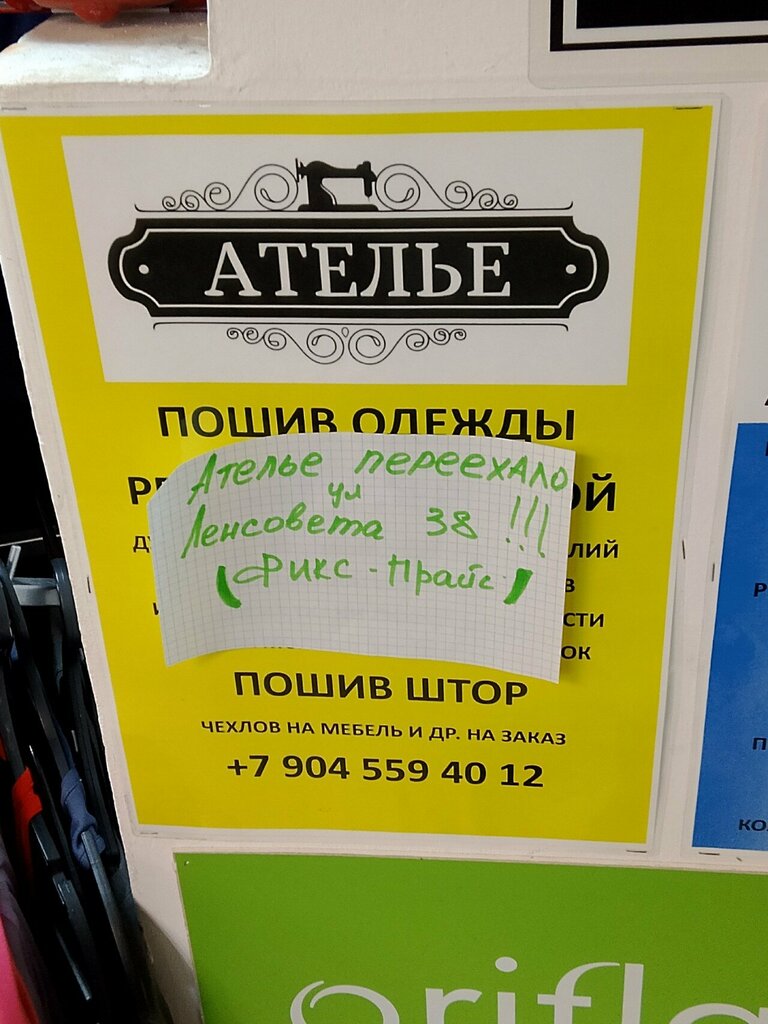 АТЕЛЬЕ
ПОШИВ ОДЕЖДЫ
Ателье переехало
ул
Ленсовета 38 !!!
(Фикс-Прайс)
ПОШИВ ШТОР
ЧЕХЛОВ НА МЕБЕЛЬ И ДР. НА ЗАКАЗ
+7 904 559 40 12
orifla